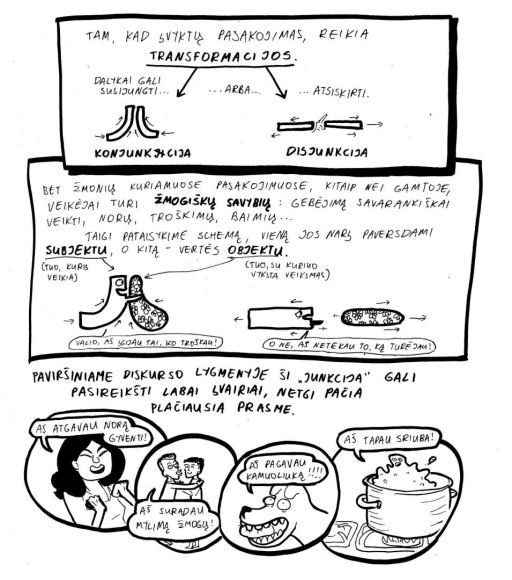 TAM, KAD ĮVYKTŲ PASAKOJIMAS, REIKIA
TRANSFORMACIJOS.
DALYKAI GALI
SUSIJUNGTI...
...ARBA...
...ATSISKIRTI.
KONJUNKCIJA
DISJUNKCIJA
BET ŽMONIŲ KURIAMUOSE PASAKOJIMUOSE, KITAIP NEI GAMTOJE,
VEIKĖJAI TURI ŽMOGIŠKŲ SAVYBIŲ: GEBĖJIMĄ SAVARANKIŠKAI
VEIKTI, NORŲ, TROŠKIMŲ, BAIMIŲ...
TAIGI PATAISYKIME SCHEMĄ, VIENĄ JOS NARĮ PAVERSDAMI
SUBJEKTU, O KITĄ - VERTĖS OBJEKTU.
(TUO, KURIS
VEIKIA)
(TUO, SU KURIUO
VYKSTA VEIKSMAS)
VALIO, AŠ ĮGIJAU TAI, KO TROŠKAU!
O NE, AŠ NETEKAU TO, KĄ TURĖJAU!
PAVIRŠINIAME DISKURSO LYGMENYJE ŠI „JUNKCIJA" GALI
PASIREIKŠTI LABAI ĮVAIRIAI, NETGI PAČIA
PLAČIAUSIA PRASME.
AŠ ATGAVAU NORĄ
GYVENTI!
AŠ SURADAU
MYLIMĄ ŽMOGŲ!
AŠ PAGAVAU
KAMUOLIUKĄ!!!!
AŠ TAPAU SRIUBA!